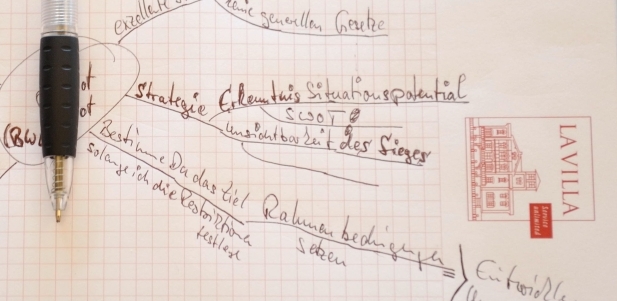 keine generellen Gesetze
ot
ot
(BW
Strategie
Erkenntnis Situationspotential
SWOT
Unsichtbarkeit des Sieges
Bestimme Du das Ziel
solange ich die Restriktionen
festlege
Rahmenbedingungen
setzen
LA VILLA
Service
unlimited